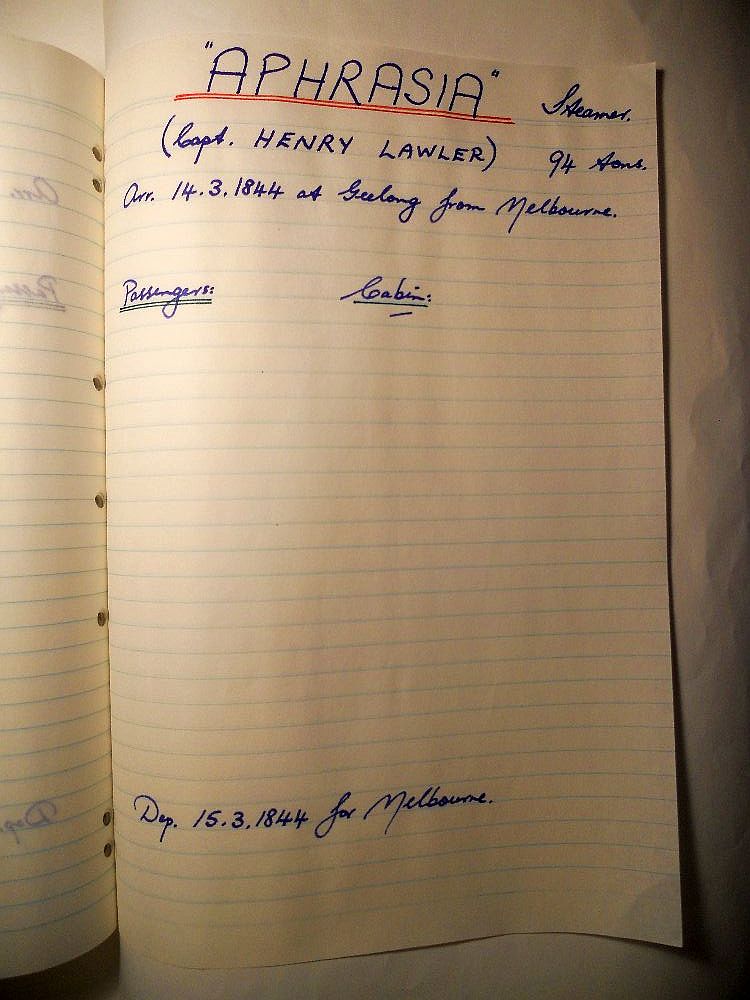 "APHRASIA" Steamer.
(Capt. HENRY LAWLER) 94 tons.
Arr. 14.3.1844 at Geelong from Melbourne.
Passengers: Cabin:
Dep. 15.3.1844 for Melbourne.